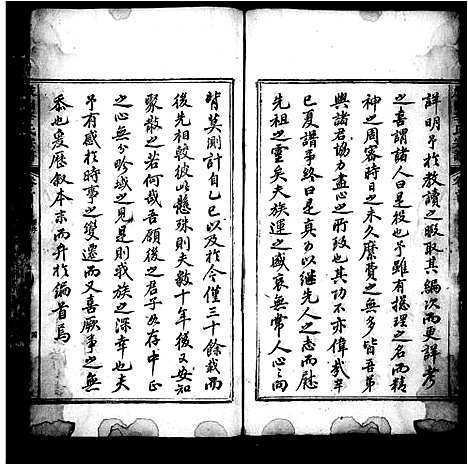 詳明予於教讀之暇取其編次而更詳考
之喜謂諸人曰是役也予雖有總理之名而精
神之周審時日之未久縻費之無多皆吾弟
與諸君協力盡心之所致也其功不亦偉哉辛
巳夏譜予終曰是真力以繼先人之志而慰
先祖之靈矣夫族運之盛衰無常人心之向
背莫測計自乙巳以及於今僅三十餘載而
後先相較彼此懸殊則夫數十年後又安知
聚散之若何哉吾願後之君子為存中正
之心無分畛域之見是則我族之深幸也夫
予有感於時事之變遷而又喜厥事之無
忝也爰歷叙本末而弁於編首焉